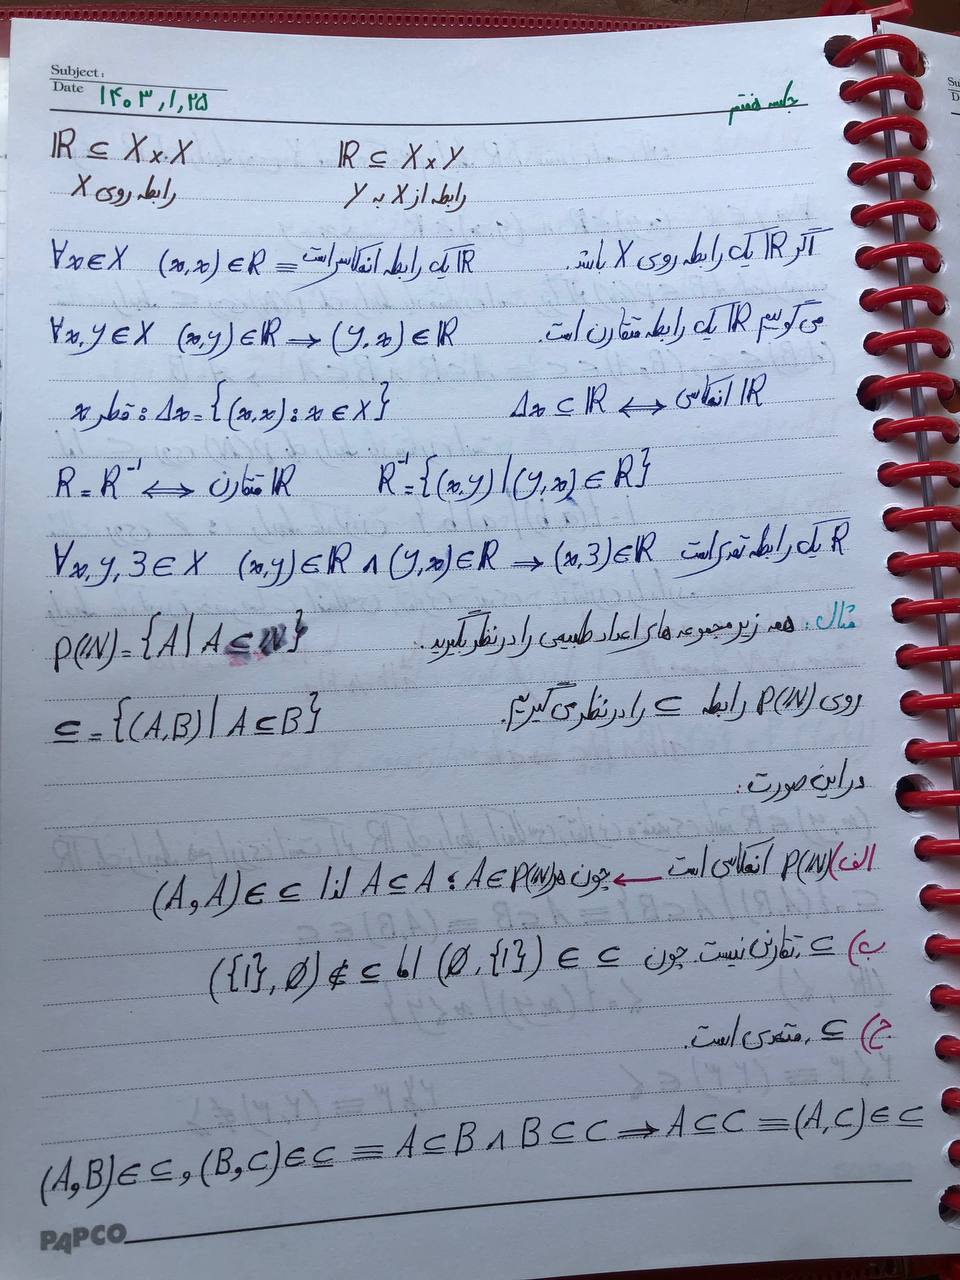 Subject:
Date ۱۴۰۳,۱,۲۵
جلسه هفتم
ℝ ⊆ X × X    ℝ ⊆ X × Y
رابطه روی X    رابطه از X به Y
اگر ℝ یک رابطه روی X باشد. ℝ یک رابطه انعکاسی است ≡ ∀x∈X (x,x)∈ℝ
می گوییم ℝ یک رابطه متقارن است. ∀x,y∈X (x,y)∈ℝ → (y,x)∈ℝ
ℝ انعکاسی ↔ Δx ⊆ ℝ    قطر x : Δx = {(x,x) : x∈X}
R⁻¹ = {(x,y) | (y,x) ∈ R}    ℝ متقارن ⟺ R = R⁻¹
ℝ یک رابطه تعدی است ∀x,y,z∈X (x,y)∈ℝ ∧ (y,x)∈ℝ → (x,z)∈ℝ
مثال: همه زیر مجموعه های اعداد طبیعی را در نظر بگیرید. P(ℕ) = {A | A ⊆ ℕ}
روی P(ℕ) رابطه ⊆ را در نظر می گیریم. ⊆ = {(A,B) | A ⊆ B}
در این صورت:
الف) P(ℕ) انعکاسی است ← چون A∈P(ℕ) ؛ A⊆A لذا (A,A)∈⊆
ب) ⊆ متقارن نیست. چون (∅,{1}) ∈ ⊆ اما ({1},∅) ∉ ⊆
ج) ⊆ متعدی است.
(A,B)∈⊆ , (B,C)∈⊆ ≡ A⊆B ∧ B⊆C → A⊆C ≡ (A,C)∈⊆
PAPCO